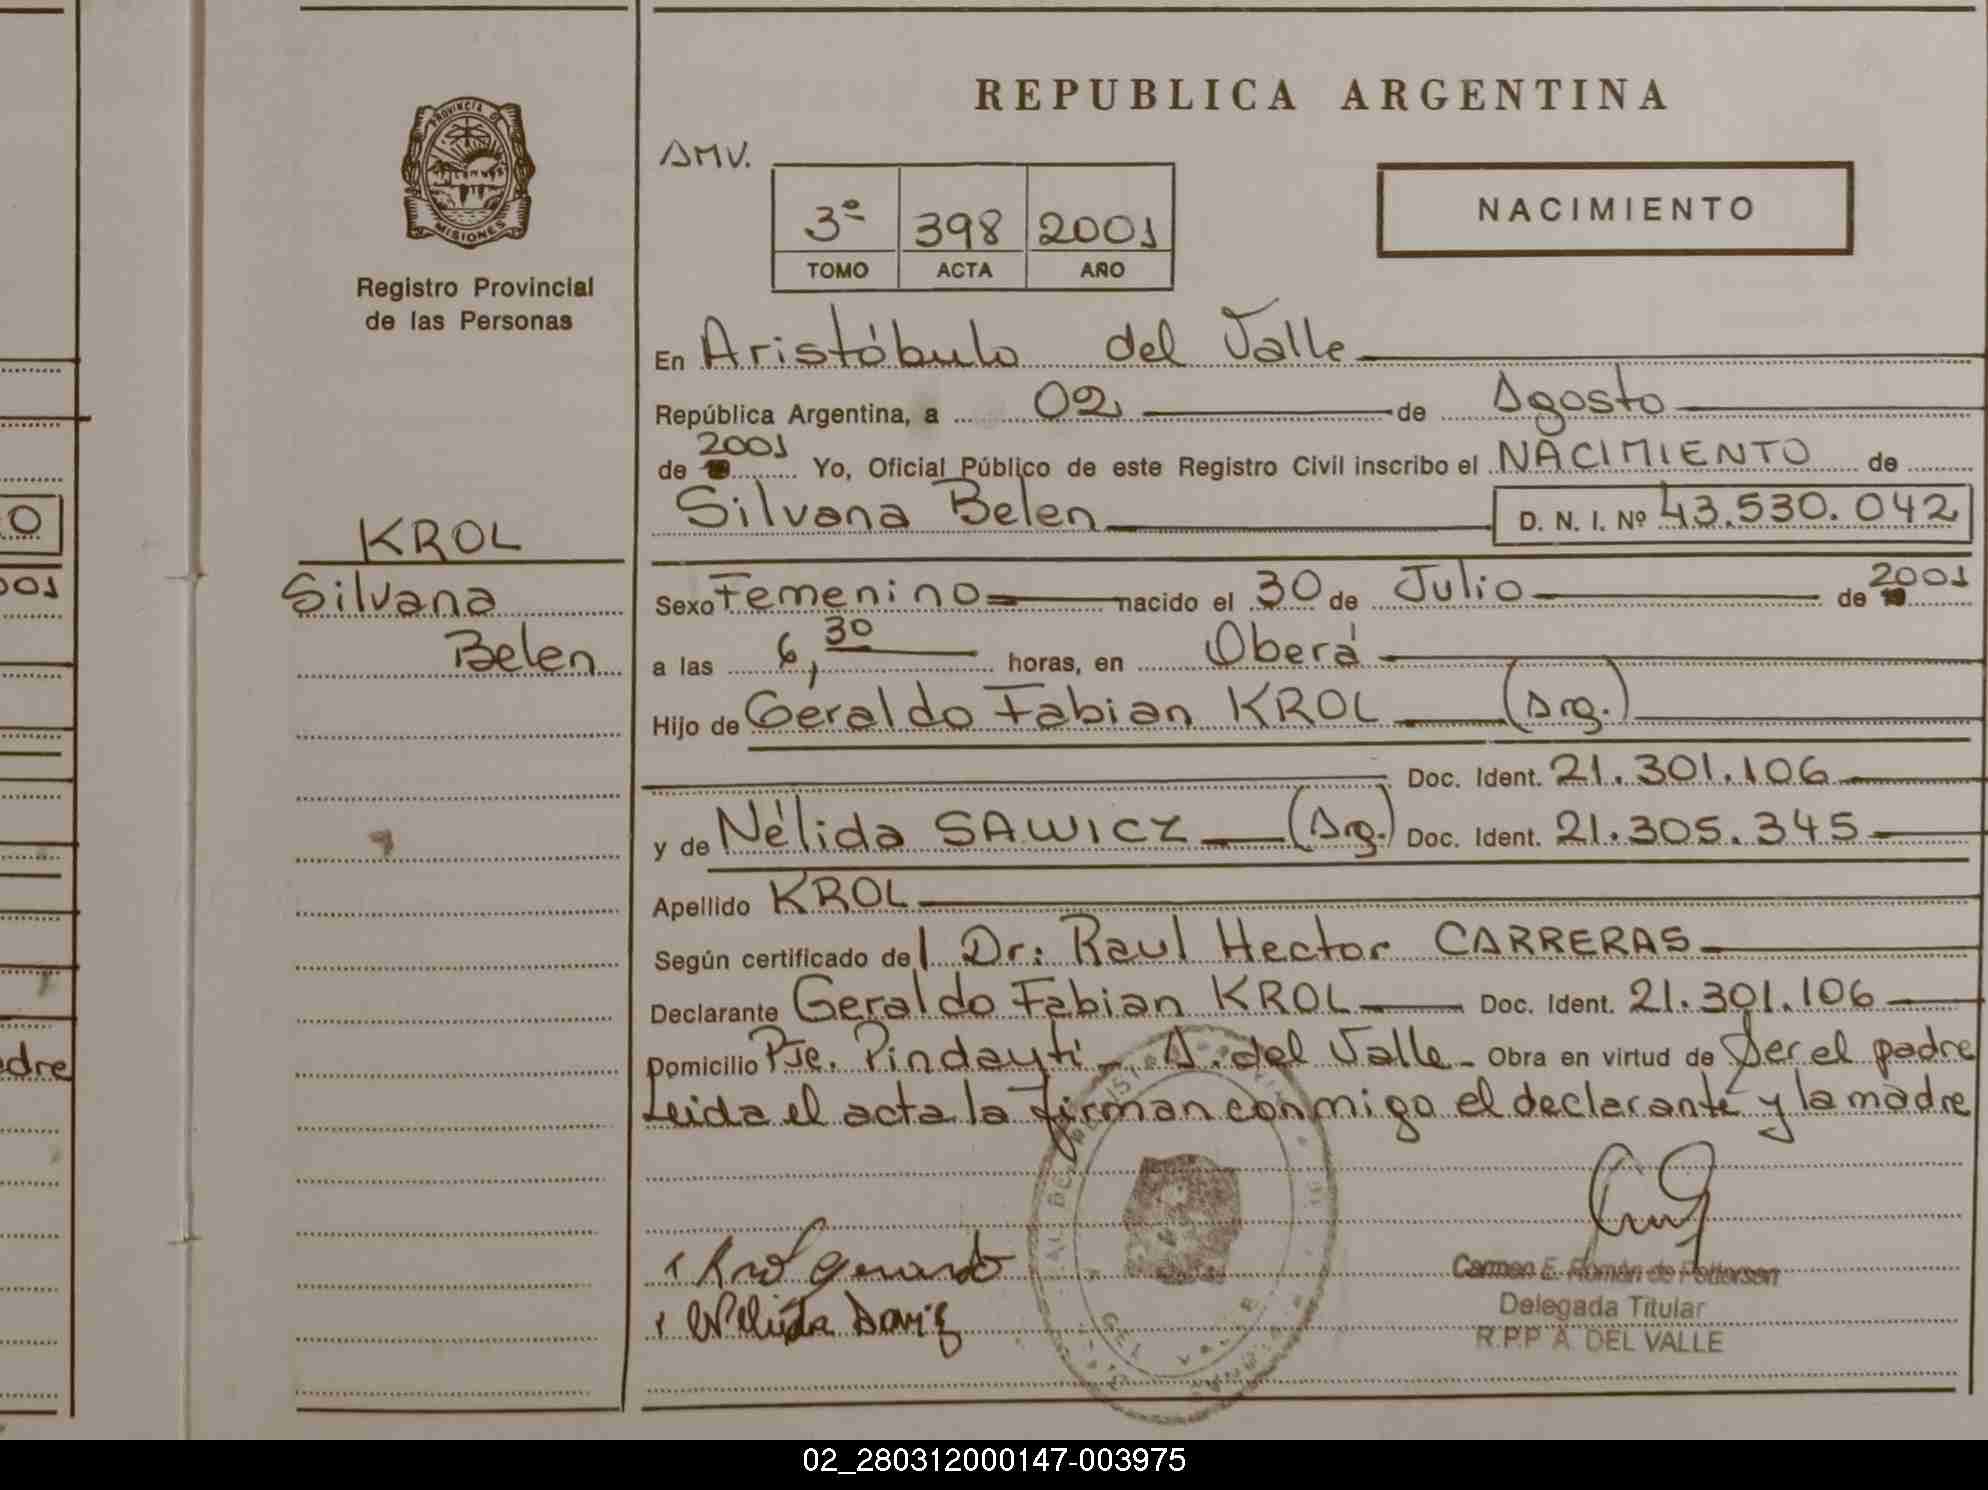 REPUBLICA ARGENTINA
PROVINCIA DE
MISIONES
Registro Provincial
de las Personas
AMV.
3º 398 2001
TOMO ACTA AÑO
NACIMIENTO
En Aristóbulo del Valle
República Argentina, a 02 de Agosto
de 2001 Yo, Oficial Público de este Registro Civil inscribo el NACIMIENTO de
Silvana Belen D. N. I. Nº 43.530.042
KROL
Silvana
Belen
Sexo Femenino nacido el 30 de Julio de 2001
a las 6,30 horas, en Oberá
Hijo de Geraldo Fabian KROL (Arg.)
Doc. Ident. 21.301.106
y de Nélida SAWICZ (Arg.) Doc. Ident. 21.305.345
Apellido KROL
Según certificado del Dr: Raul Hector CARRERAS
Declarante Geraldo Fabian KROL Doc. Ident. 21.301.106
Domicilio Pje. Pindaytí - A. del Valle - Obra en virtud de Ser el padre
Leida el acta la firman conmigo el declarante y la madre
Carmen E. Román de Pettersen
Delegada Titular
R.P.P A. DEL VALLE
0
001
adre
02_280312000147-003975